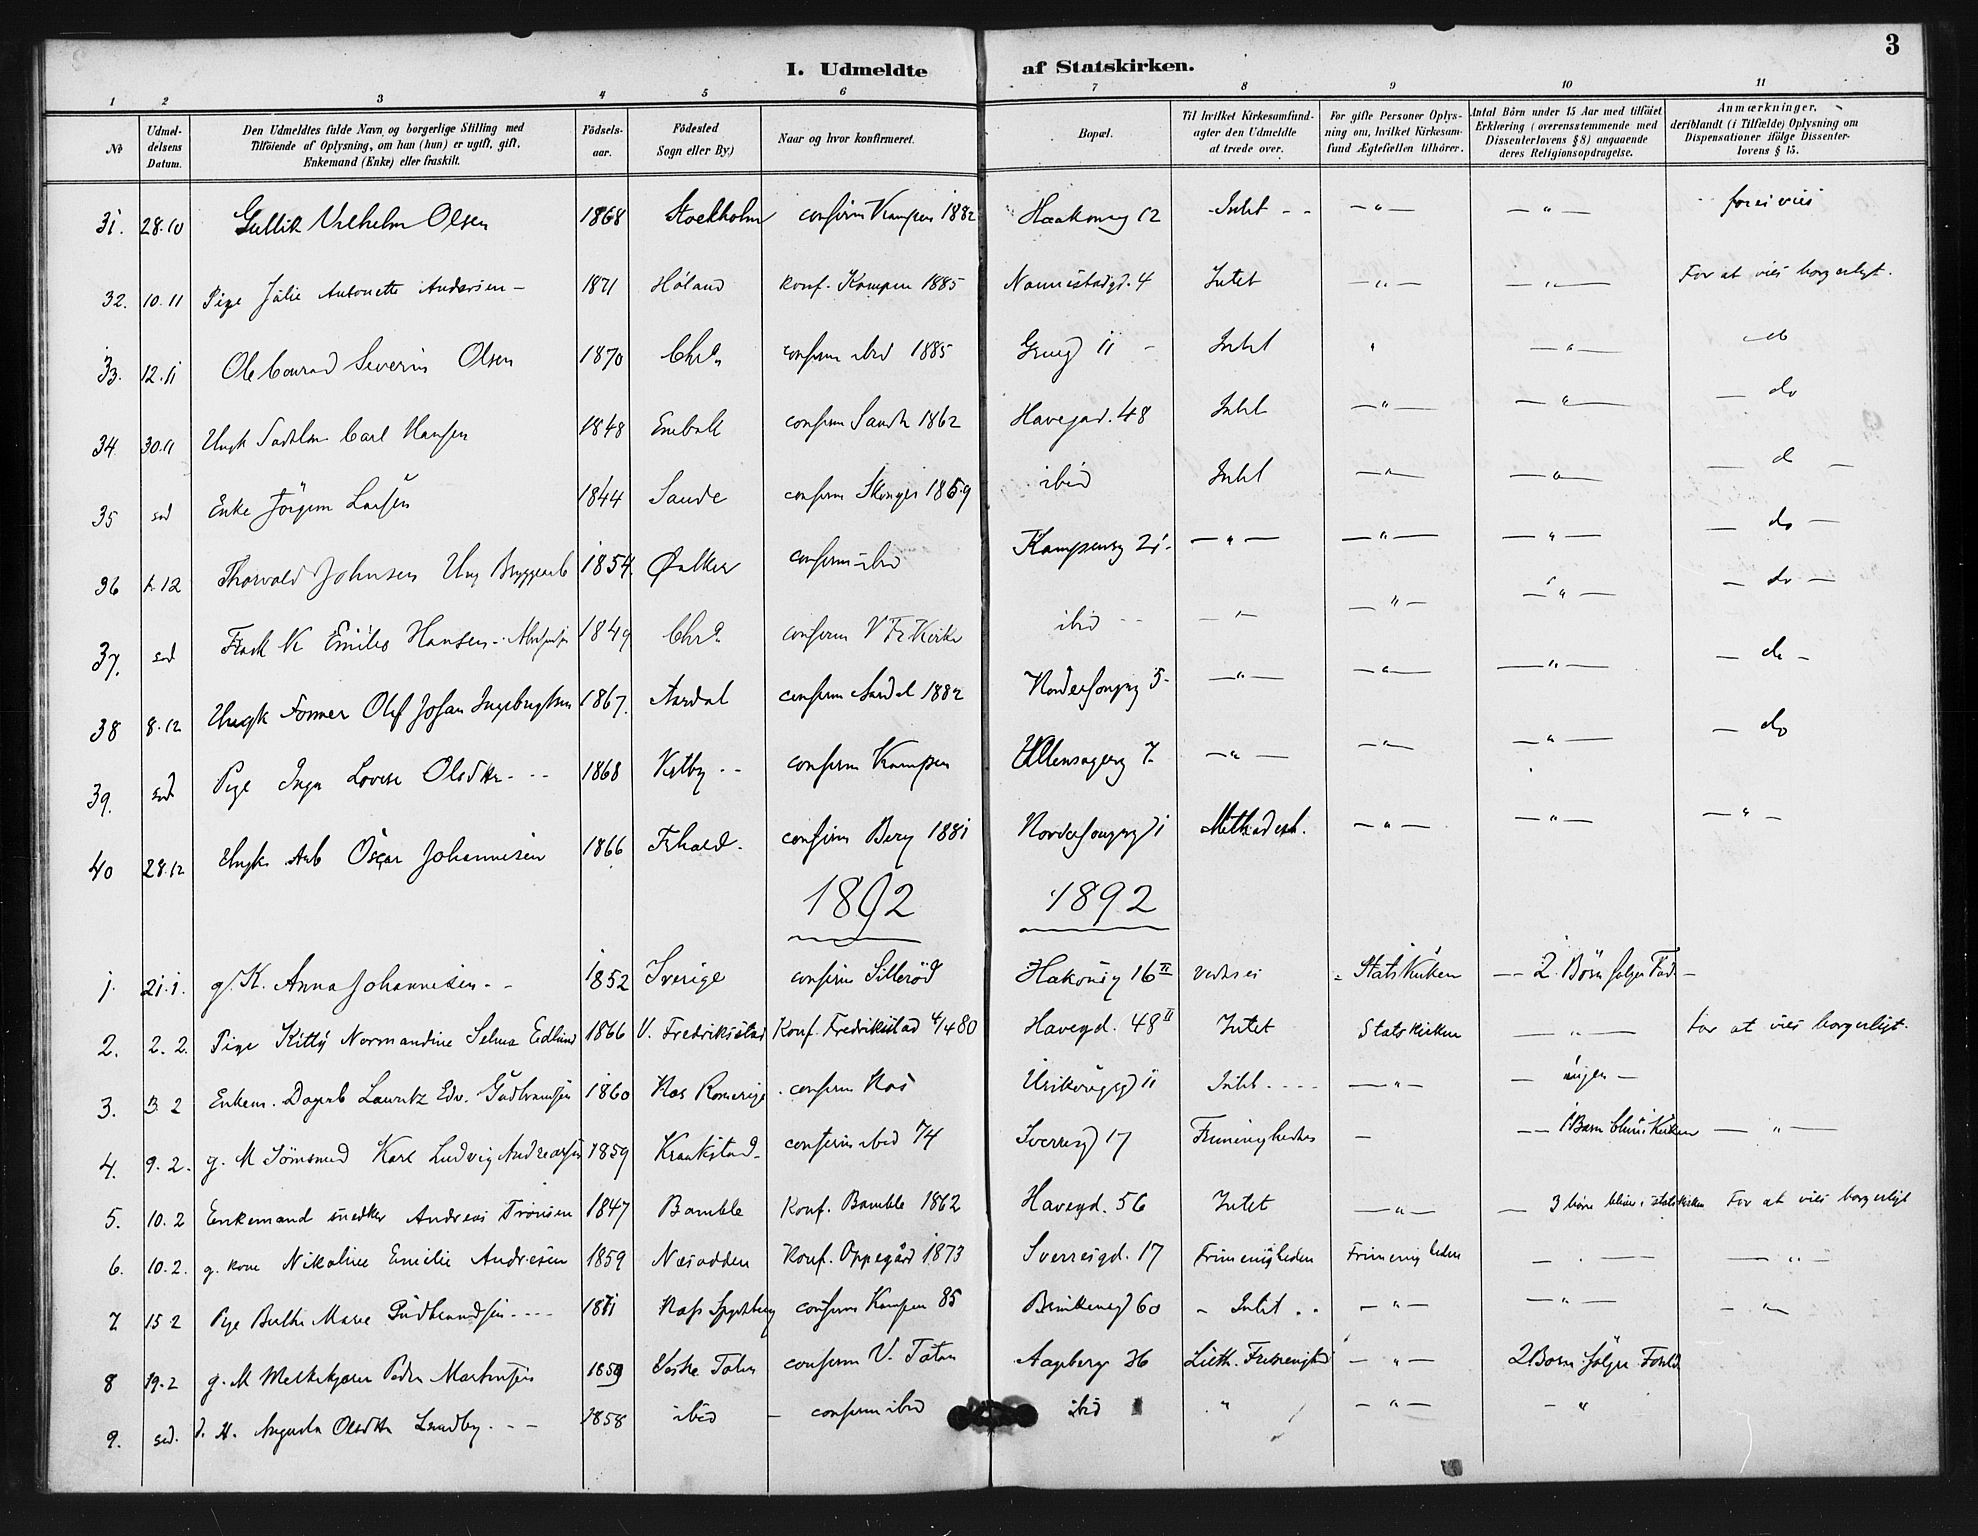 3
I. Udmeldte af Statskirken.
1 2 3 4 5 6 7 8 9 10 11
No
Udmel-
delsens
Datum.
Den Udmeldtes fulde Navn og borgerlige Stilling med
Tilföiende af Oplysning, om han (hun) er ugift, gift,
Enkemand (Enke) eller fraskilt.
Födsels-
aar.
Födested
Sogn eller By)
Naar og hvor konfirmeret.
Bopæl.
Til hvilket Kirkesamfund-
agter den Udmeldte
at træde over.
For gifte Personer Oplys-
ning om, hvilket Kirkesam-
fund Ægtefællen tilhører.
Antal Börn under 15 Aar med tilföiet
Erklæring (overensstemmende med
Dissenterlovens § 8) angaaende
deres Religionsopdragelse.
Anmærkninger,
deriblandt (i Tilfælde) Oplysning om
Dispensationer ifölge Dissenter-
lovens § 15.
31. 28.10 Gullik Vilhelm Olsen 1868 Stockholm confirm Kampen 1882 Haakonsg 12 Intet - - — " — — " —
32. 10.11 Pige Julie Antonette Andersen - 1871 Höland konf. Kampen 1885 Nannestadgd. 4 Intet — " — — " — For at vies borgerligt.
33. 12.11 Ole Conrad Severin Olsen 1870 Chra confirm ibid 1885 11 - Intet " — " — do
34 30.11 Carl Hansen 1848 Enebak confirm Sande 1862 Havegad. 48 Intet — " — — " — — do
35 sd Enke Jörgine Larsen 1844 Sande confirm 1859 ibid Intet — " — — " — — do —
36 1.12 Thorvald Johnsen 1854. confirm ibid Kampensg 21. — " — — " — — " — — do —
37. sd Frask K Emilie Hansen 1849 Chra confirm V Fr Kirke ibid - - — " — — " — — " — — do —
38 8.12 Ungk Former Olaf Johan Ingebrigtsen 1867. Aardal confirm Aardal 1882 5. — " — — " — — " — — do -
39. sd Pige Inga Lovise Olsdtr - - - 1868 Vestby - - confirm Kampen Ullensagerg 7. — " — — " — — " — — do
40 28.12 Ungk. Arb Oscar Johannesen 1866 Frhald. confirm Berg 1881 1 Methodisk. — " — — " — — " —
1892 1892
1. 21.1. g. K. Anna Johannesen - - 1852 Sverige confirm Silleröd Hakonsg 16 II = Statskirken — 2 Börn fölger Fad. —
2. 2.2. Pige Kitty Normandine Selma Edlund 1866 V. Fredrikstad Konf. Fredrikstad 4/4 80 Havegd. 48 II Intet Statskirken — " — For at vies borgerligt.
3. 3.2 Enkem. Dagarb Lauritz Edv. Gudbransen 1860 Nas Romerige confirm Nas 11 Intet - - - - — " — — ingen —
4. 9.2. g. M Sömsmed Karl Ludvig Andreassen 1859 Kraakstad - confirm ibid 74 Sverresg 17 Frimenigheden — — 1 Barn bliver i Kirken — " —
5. 10.2 Enkemand snedker Andreas Tronsen 1847 Bamble Konf. Bamble 1862 Havegd. 56 Intet — " — — 3 börn bliver i statskirken For at vies borgerligt
6. 10.2. g. kone Nikoline Emilie Andresen 1859 Næsodden Konf. Oppegård 1873 Sverresgd. 17 Frimenigheden Frimenigheden — . — — " —
7. 15.2 Pige Berthe Marie Gudbrandsen - - - 1871 confirm Kampen 85 60 - Intet . . — " — — " — — " —
8 19.2 g. M Melkekjörer Peder Martinsen 1859 Vestre Toten confirm V. Toten Aagebergv 26 Luth. Frimenighed — " — 2 Born fölger Foreld
9. sd. Augusta Olsdtr Lundby - - - 1858 ibid — confirm ibid ibid " — " — — "